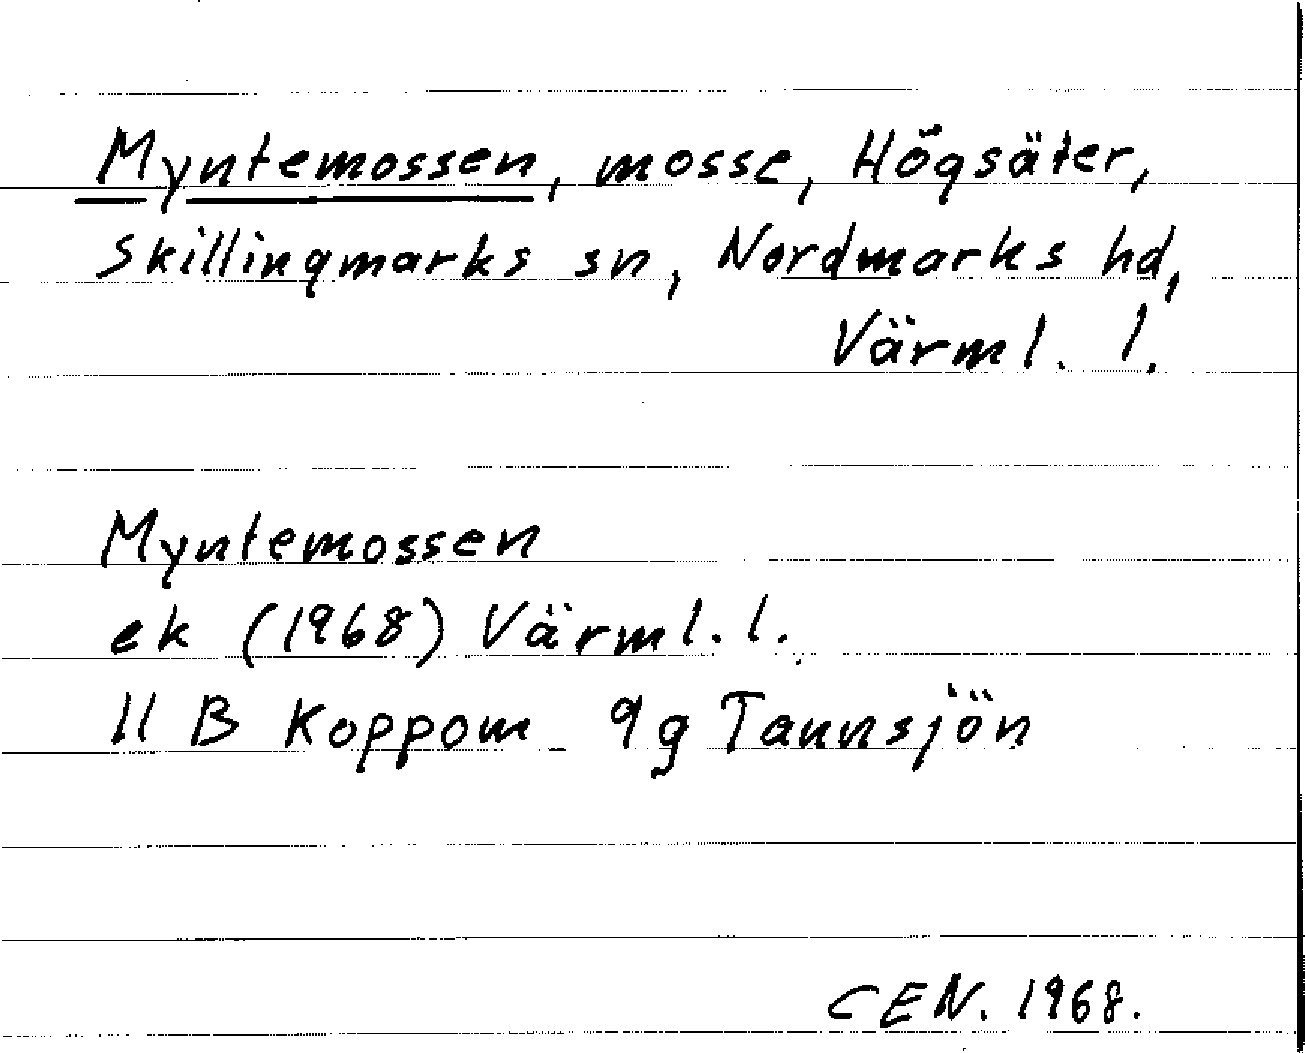 Myntemossen, mosse, Högsäter,
Skillingmarks sn, Nordmarks hd,
Värml. l.
Myntemossen
ek (1968) Värml. l.
11 B Koppom 9g Tannsjön
CEN. 1968.